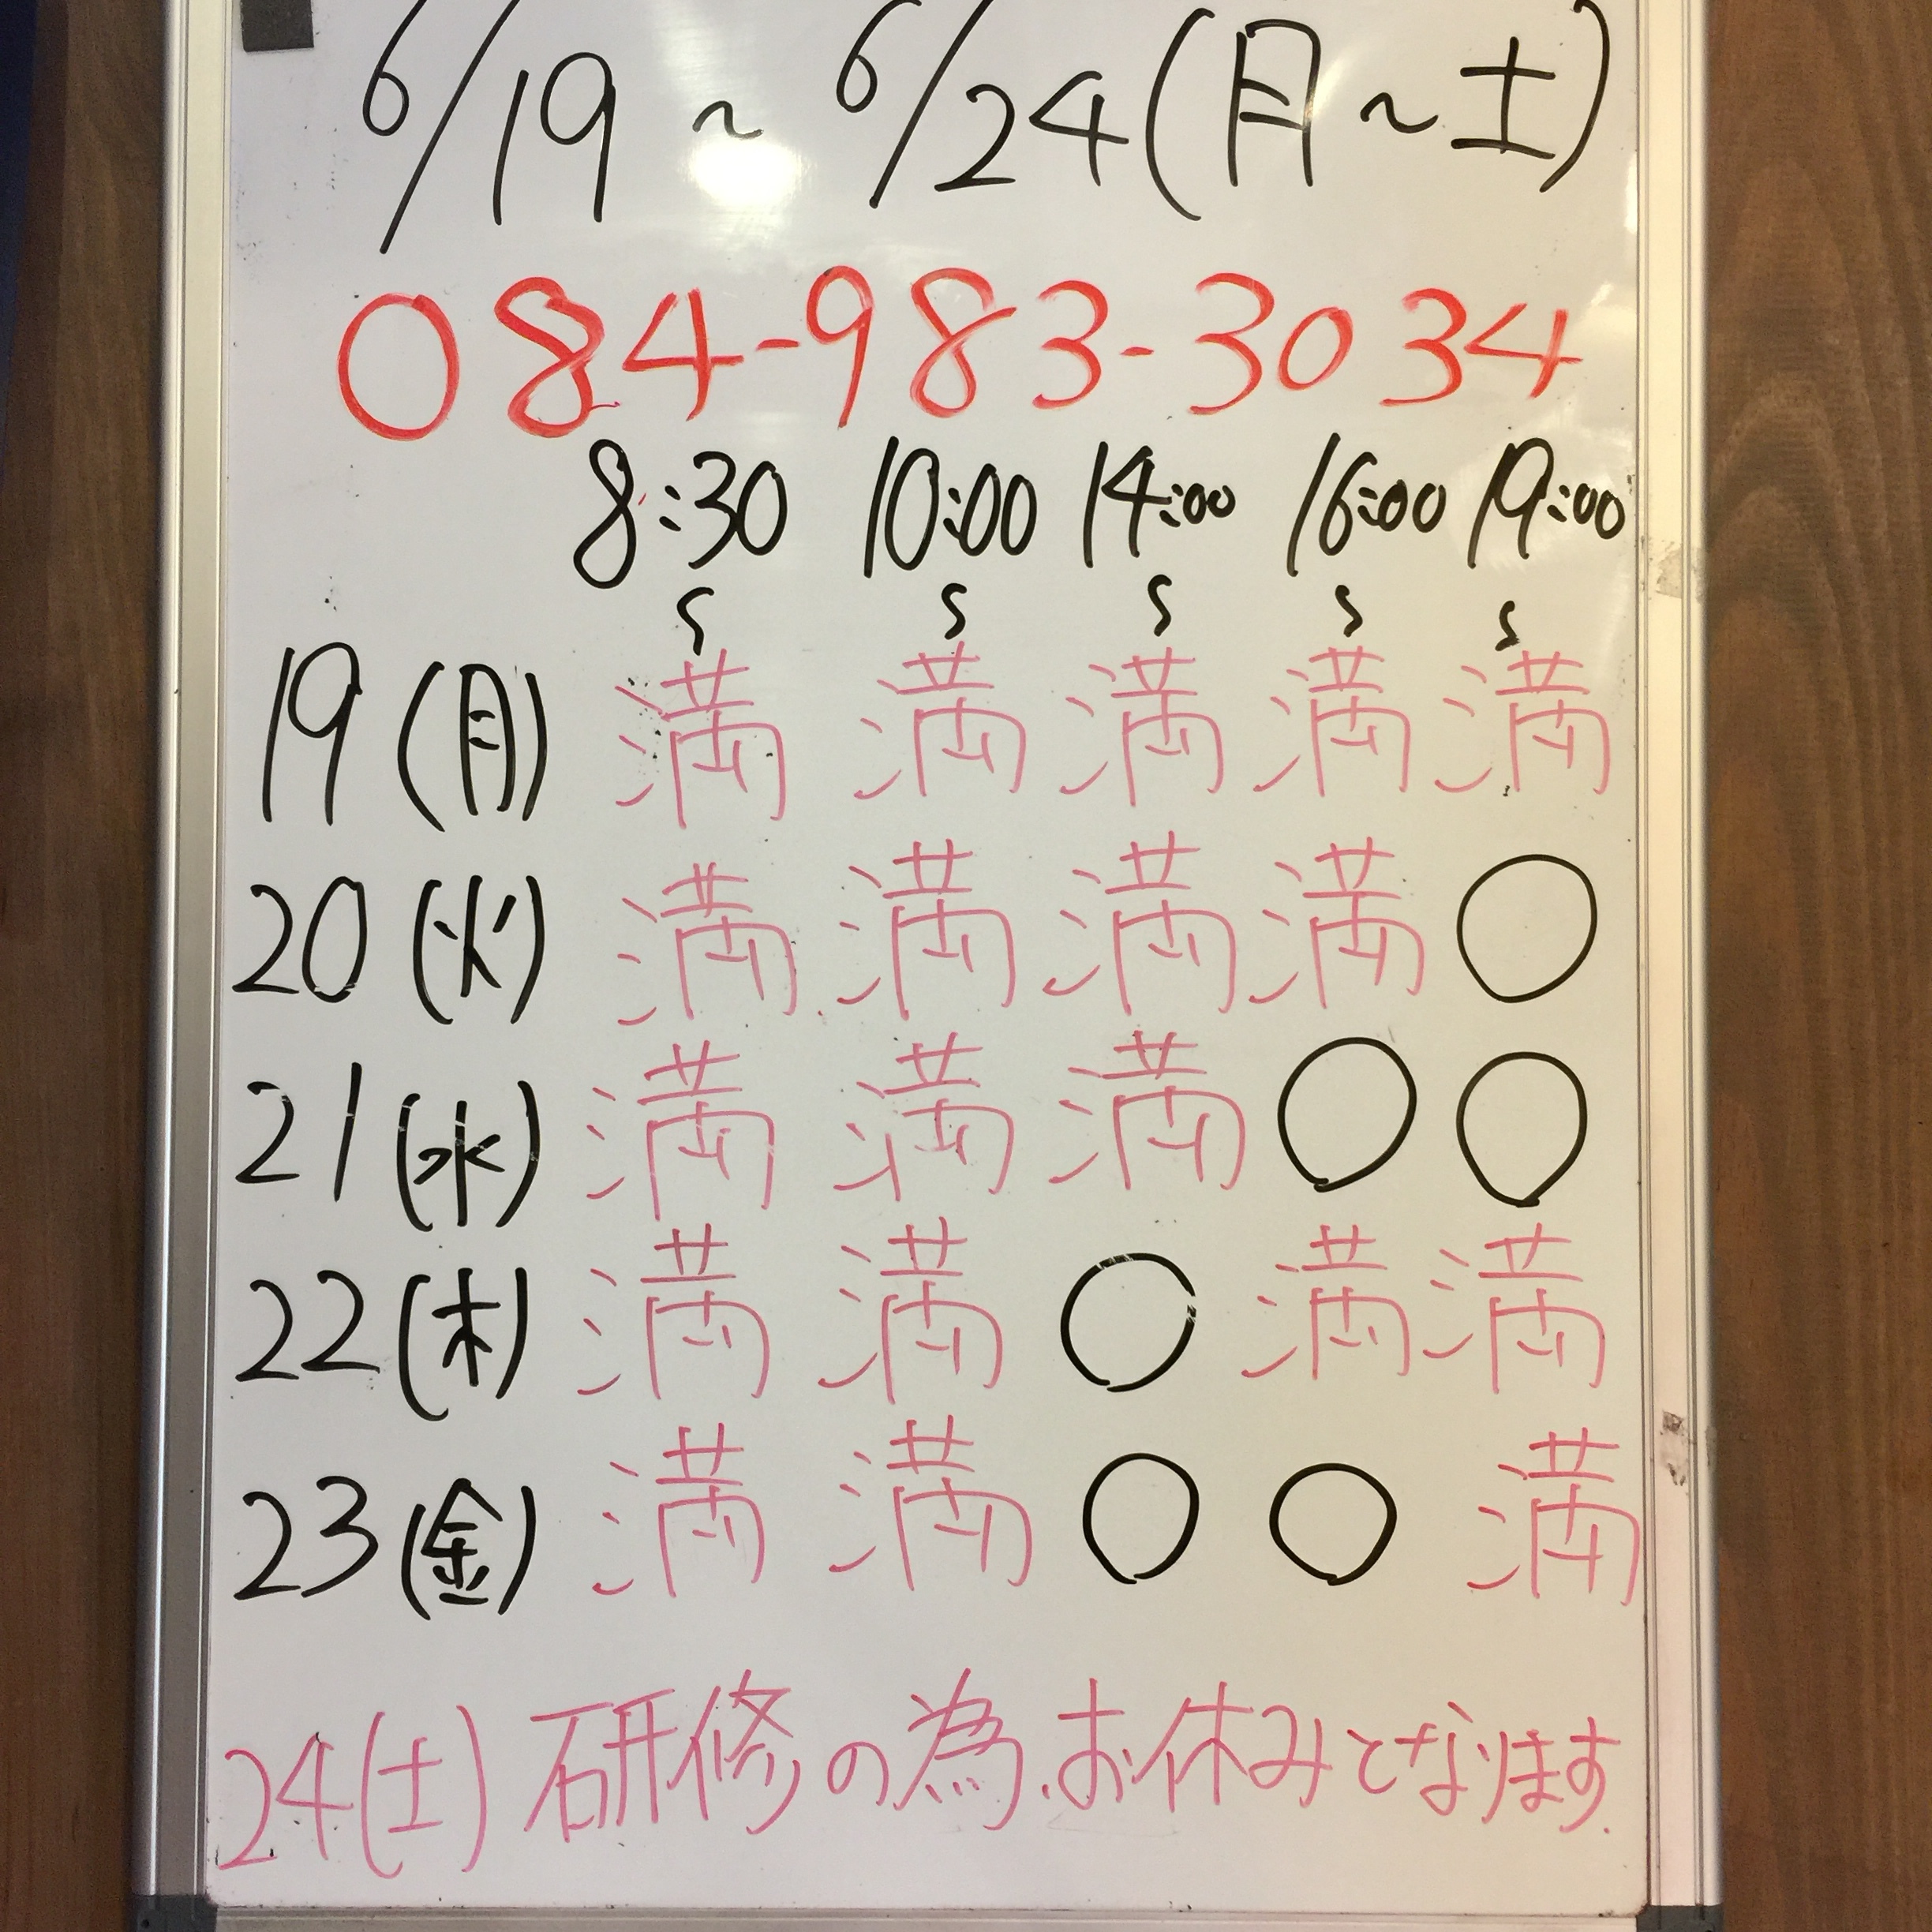 6/19 ~ 6/24 (月~土)
084-983-3034
8:30 10:00 14:00 16:00 19:00
~ ~ ~ ~ ~
19 (月) 満 満 満 満 満
20 (火) 満 満 満 満 ○
21 (水) 満 満 満 ○ ○
22 (木) 満 満 ○ 満 満
23 (金) 満 満 ○ ○ 満
24 (土) 研修の為、お休みとなります.